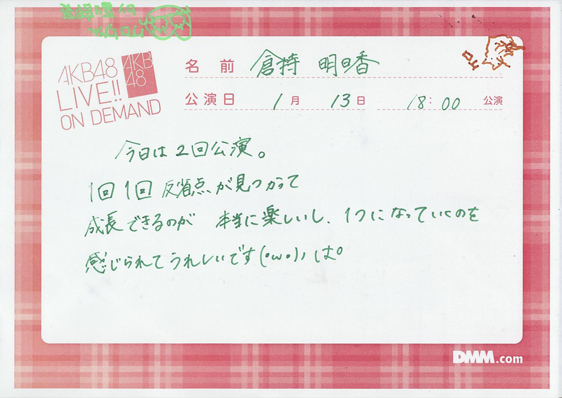 AKB48
LIVE!!
ON DEMAND
AKB
48
名前 倉持 明日香
公演日 1月 13日 18:00 公演
今日は2回公演。
1回1回 反省点が見つかって
成長できるのが 本当に楽しいし、1つになっていくのを
感じられてうれしいです(・ω・)ノ は。
DMM.com